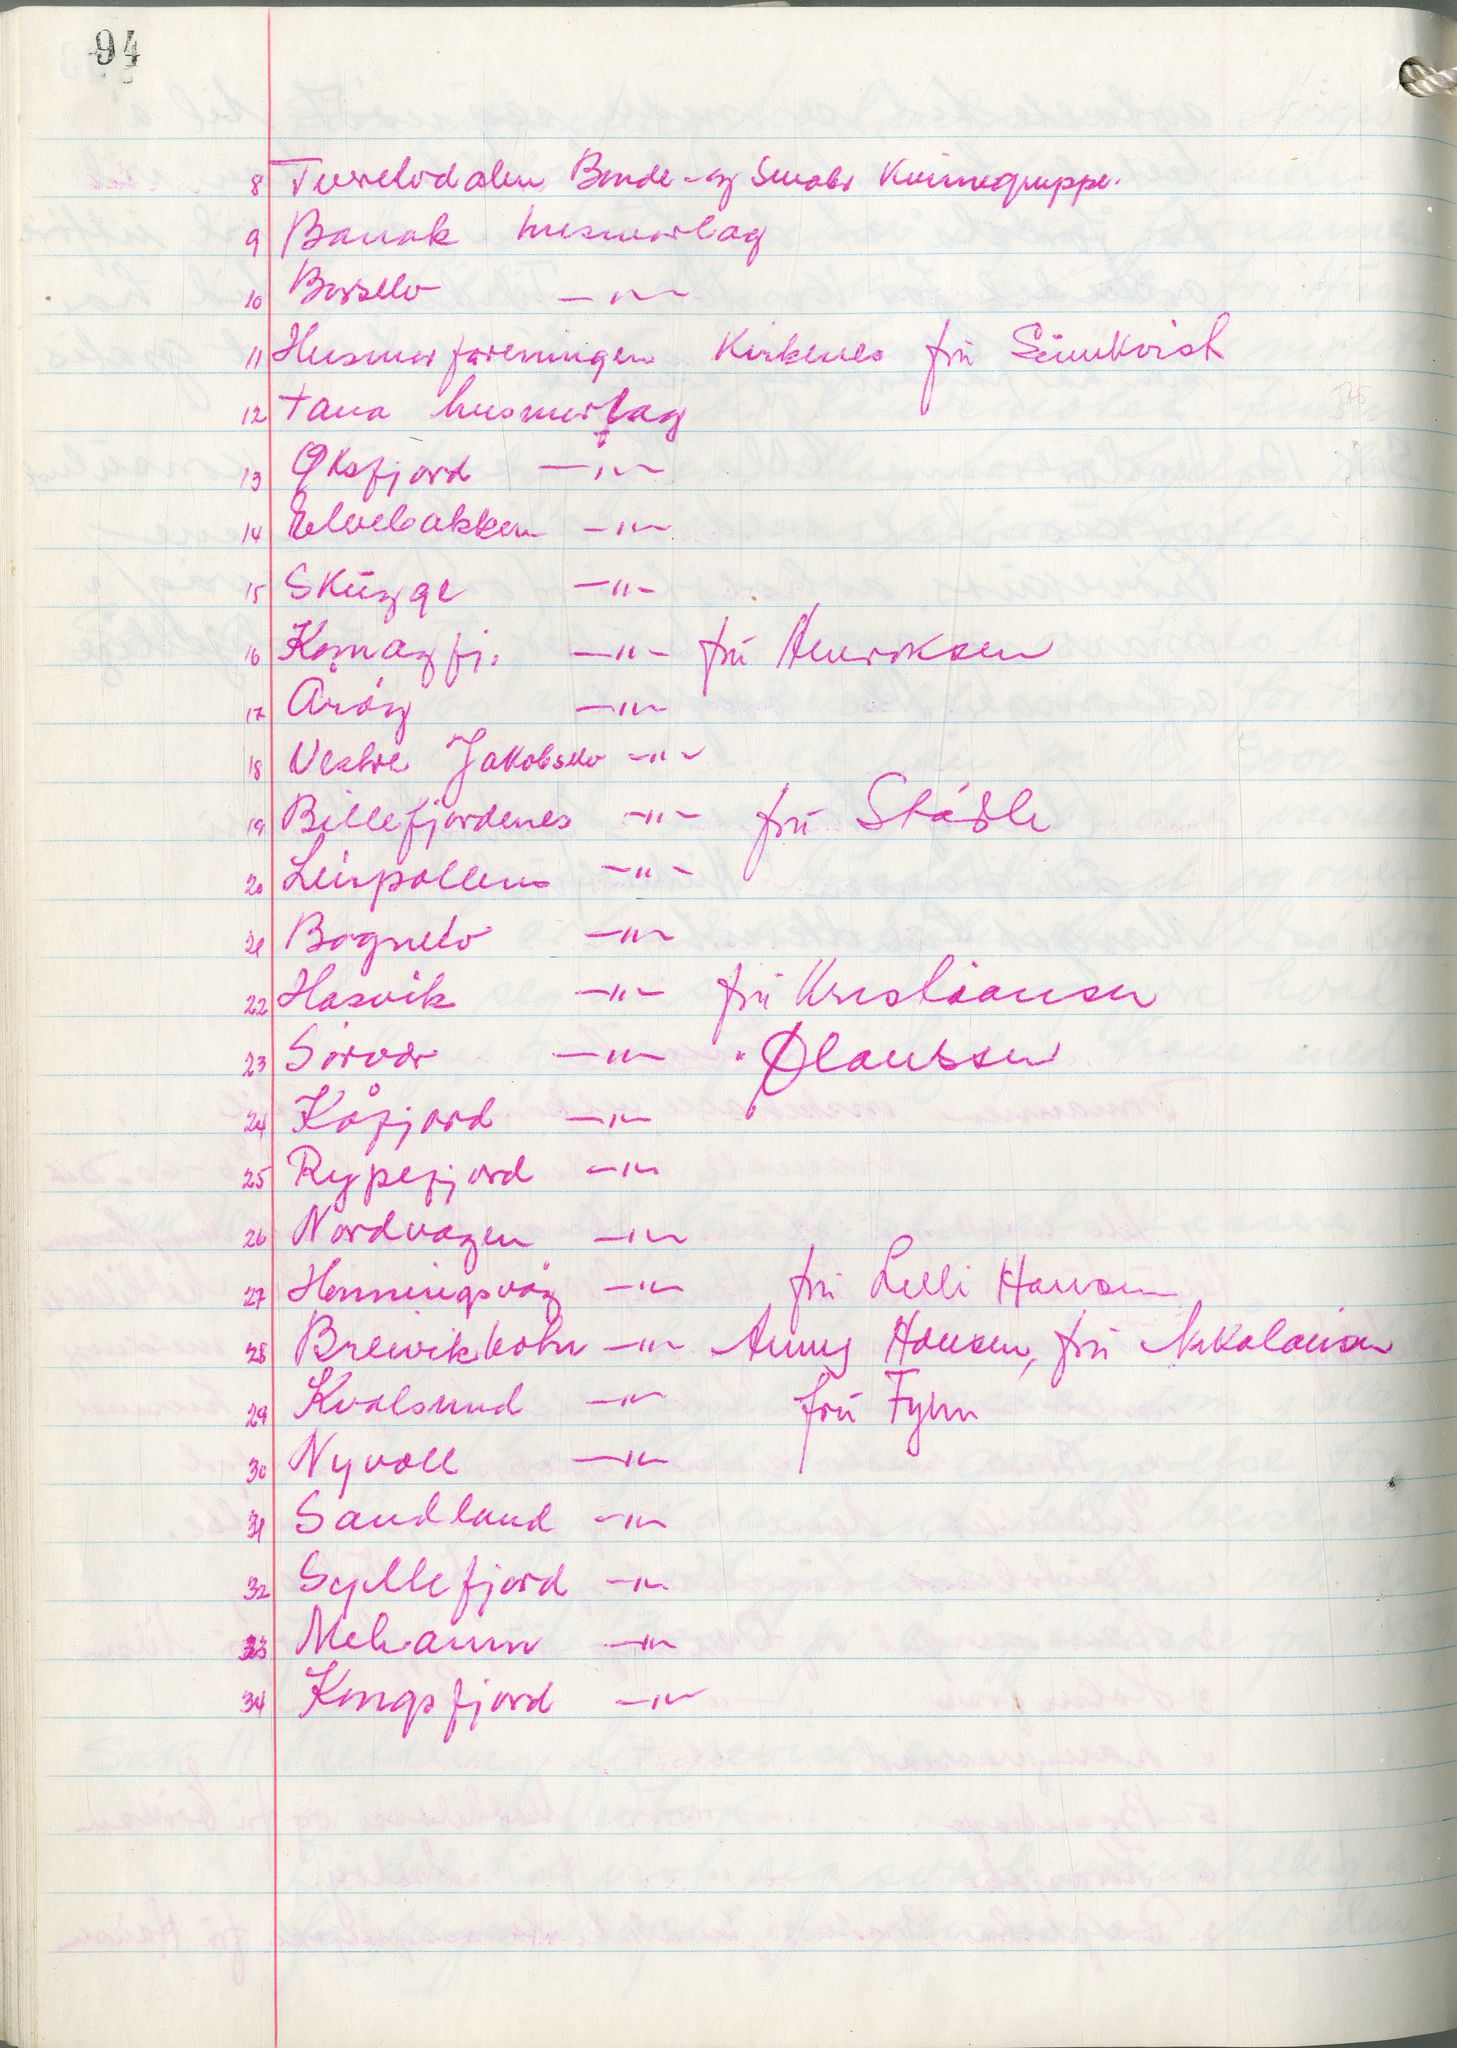 94
8 Tverrelvdalen Bonde- og Småbr Kvinnegruppe.
9 Banak husmorlag
10 Børselv —"—
11 Husmorforeningen Kirkenes frú Súndkvist
12 Tana husmorlag
13 Øksfjord —"—
14 Elvebakken —"—
15 Skúgge —"—
16 Komagfj. —"— frú Henriksen
17 Årøy —"—
18 Vestre Jakobselv —"—
19 Billefjordenes —"— frú Ståhle
20 Leirpollen —"—
21 Bognelv —"—
22 Hasvik —"— frú Kristiansen
23 Sørvær —"— " Olaussen
24 Kåfjord —"—
25 Rypefjord —"—
26 Nordvågen —"—
27 Honningsvåg —"— frú Lilli Hansen
28 Breivikbotn —"— Anny Hansen, frú Nikolaisen
29 Kvalsund —"— frú Fyhn
30 Nyvoll —"—
31 Sandland —"—
32 Syltefjord —"—
33 Mehamn —"—
34 Kongsfjord —"—